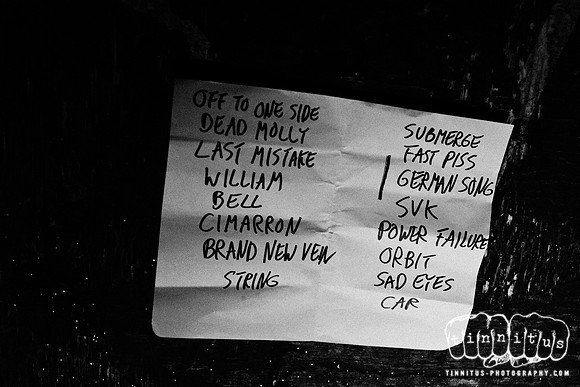 OFF TO ONE SIDE
DEAD MOLLY
LAST MISTAKE
WILLIAM
BELL
CIMARRON
BRAND NEW VEIN
STRING
SUBMERGE
FAST PISS
GERMAN SONG
SVK
POWER FAILURE
ORBIT
SAD EYES
CAR
tinnitus
TINNITUS-PHOTOGRAPHY.COM